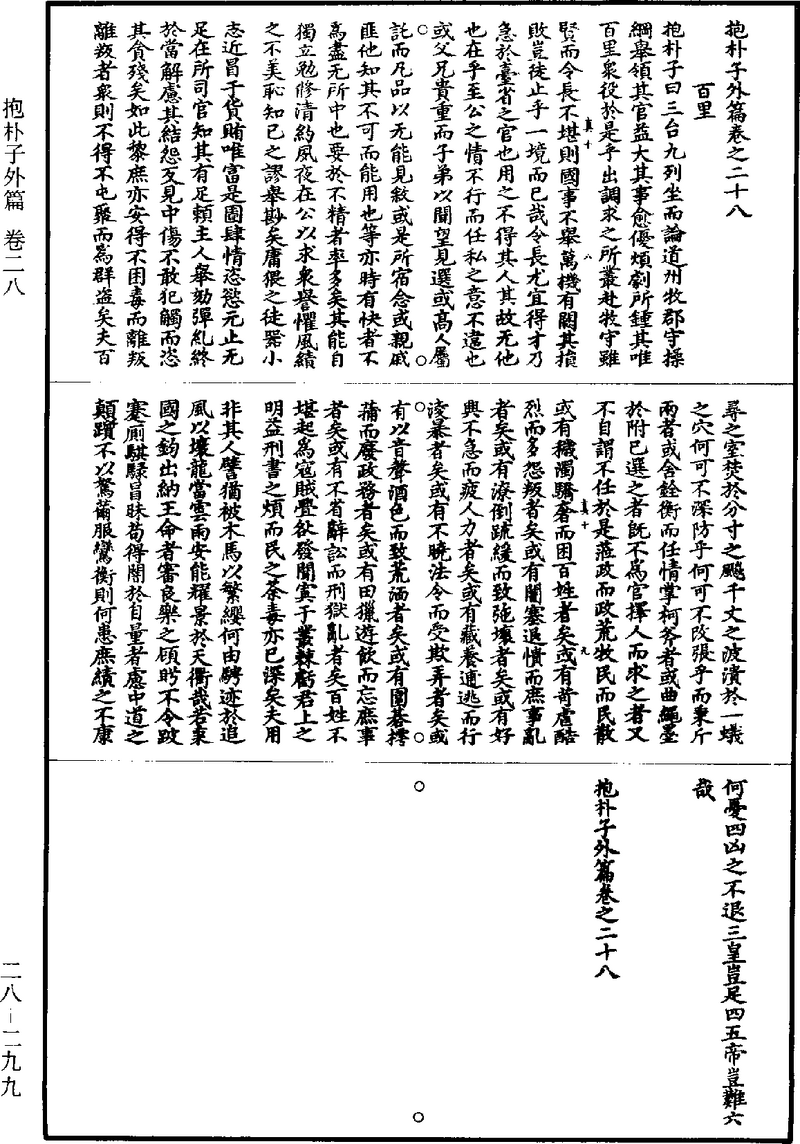 抱朴子外篇卷之二十八
百里
抱朴子曰三台九列坐而論道州牧郡守操
綱舉領其官益大其事愈優煩劇所鍾其唯
百里衆役於是乎出調求之所叢赴牧守雖
賢而令長不堪則國事不舉萬機有闕其損
敗豈徒止乎一境而已哉令長尤宜得才乃
急於臺省之官也用之不得其人其故无他
也在乎至公之情不行而任私之意不違也
或父兄貴重而子弟以聞望見選或高人屬
託而凡品以无能見敘或是所宿念或親戚
匪他知其不可而能用也等亦時有快者不
爲盡无所中也要於不精者率多矣其能自
獨立勉修清約夙夜在公以求衆譽懼風績
之不美恥知已之謬舉尠矣庸猥之徒器小
志近冒于貨賄唯富是圖肆情恣慾无止无
足在所司官知其有足賴主人舉劾彈糺終
於當解慮其結怨反見中傷不敢犯觸而恣
其貪殘矣如此黎庶亦安得不困毒而離叛
離叛者衆則不得不屯聚而爲群盜矣夫百
尋之室焚於分寸之飈千丈之波潰於一蟻
之穴何可不深防乎何可不攺張乎而秉斤
兩者或舍銓衡而任情掌柯斧者或曲繩墨
於附已選之者旣不爲官擇人而求之者又
不自謂不任於是蒞政而政荒牧民而民散
或有穢濁驕奢而困百姓者矣或有苛虐酷
烈而多怨叛者矣或有闇塞退憒而庶事亂
者矣或有潦倒疏緩而致弛壞者矣或有好
興不急而疲人力者矣或有藏養逋逃而行
淩暴者矣或有不曉法令而受欺弄者矣或
有以音聲酒色而致荒湎者矣或有圍棊摴
蒱而廢政務者矣或有田獵遊飲而忘庶事
者矣或有不省辭訟而刑獄亂者矣百姓不
堪起爲寇賊釁欲發聞寘于叢棘虧君上之
明益刑書之煩而民之荼毒亦已深矣夫用
非其人譬猶被木馬以繁纓何由騁迹於追
風以壞龍當雲雨安能耀景於天衢哉若秉
國之鈞出納王命者審良樂之傾眄不令跛
蹇厠騏騄冒昧苟得闇於自量者慮中道之
顛躓不以駑薾服鸞衡則何患庶績之不康
何憂四凶之不退三皇豈足四五帝豈難六
哉
抱朴子外篇卷之二十八
真十
八
真十
九
抱朴子外篇 卷二八
二八—二九九